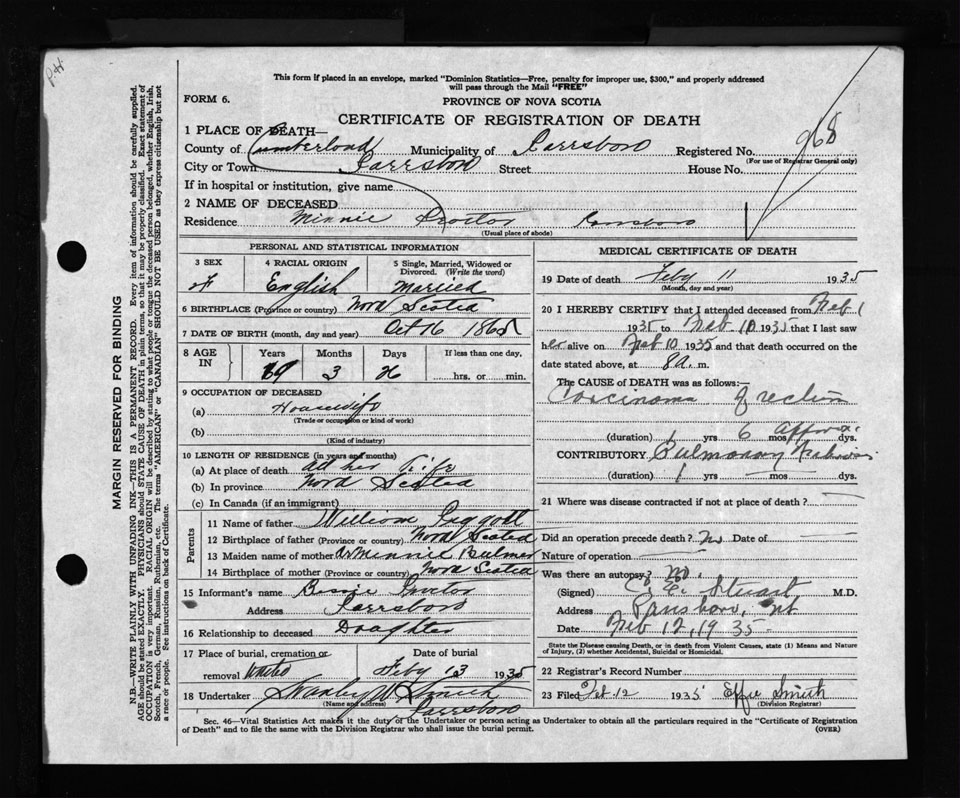 P.H
This form if placed in an envelope, marked "Dominion Statistics—Free, penalty for improper use, $300," and properly addressed
will pass through the Mail "FREE"
FORM 6.
PROVINCE OF NOVA SCOTIA
CERTIFICATE OF REGISTRATION OF DEATH
968
1 PLACE OF DEATH—
County of Cumberland Municipality of Parrsboro Registered No.
(For use of Registrar General only)
City or Town Parrsboro Street House No.
If in hospital or institution, give name
2 NAME OF DECEASED
Residence Minnie Proctor Parrsboro
(Usual place of abode)
PERSONAL AND STATISTICAL INFORMATION
3 SEX 4 RACIAL ORIGIN 5 Single, Married, Widowed or Divorced. (Write the word)
F English Married
6 BIRTHPLACE (Province or country) Nova Scotia
7 DATE OF BIRTH (month, day and year) Oct 16 1865
8 AGE IN Years Months Days If less than one day,
69 3 26 hrs. or min.
9 OCCUPATION OF DECEASED
(a) Housewife
(Trade or occupation or kind of work)
(b)
(Kind of industry)
10 LENGTH OF RESIDENCE (in years and months)
(a) At place of death all her life
(b) In province Nova Scotia
(c) In Canada (if an immigrant)
Parents
11 Name of father William
12 Birthplace of father (Province or country) Nova Scotia
13 Maiden name of mother Minnie Bulmer
14 Birthplace of mother (Province or country) Nova Scotia
15 Informant's name Bessie Proctor
Address Parrsboro
16 Relationship to deceased Daughter
17 Place of burial, cremation or removal Date of burial
Feby 13 1935
18 Undertaker Stanley W Smith
(Name and address) Parrsboro
MEDICAL CERTIFICATE OF DEATH
19 Date of death Feby 11 1935
(Month, day and year)
20 I HEREBY CERTIFY that I attended deceased from Feb 1
1935 to Feb 10 1935 that I last saw
her alive on Feb 10 1935 and that death occurred on the
date stated above, at 8 a. m.
The CAUSE OF DEATH was as follows:—
Carcinoma of rectum
(duration) 1 yrs 6 mos approx dys.
CONTRIBUTORY Pulmonary
(duration) 1 yrs mos dys.
21 Where was disease contracted if not at place of death?
Did an operation precede death? No Date of
Nature of operation
Was there an autopsy? No.
(Signed) Stuart M.D.
Address Parrsboro, NS
Date Feb 12, 1935
State the Disease causing Death, or in death from Violent Causes, state (1) Means and Nature
of Injury, (2) whether Accidental, Suicidal or Homicidal.
22 Registrar's Record Number
23 Filed Feb 12 1935 Effie Smith
(Division Registrar)
Sec. 46—Vital Statistics Act makes it the duty of the Undertaker or person acting as Undertaker to obtain all the particulars required in the "Certificate of Registration
of Death" and to file the same with the Division Registrar who shall issue the burial permit.
(OVER)
MARGIN RESERVED FOR BINDING
N.B.—WRITE PLAINLY WITH UNFADING INK—THIS IS A PERMANENT RECORD. Every item of information should be carefully supplied.
AGE should be stated EXACTLY. PHYSICIANS should STATE CAUSE OF DEATH in plain terms, so that it may be properly classified. Exact statement of
OCCUPATION is very important. RACIAL ORIGIN will be described by stating to what people or tongue the deceased person belonged, whether English, Irish,
Scotch, French, German, Russian, Ruthenian, etc. The terms "AMERICAN" or "CANADIAN" SHOULD NOT BE USED as they express citizenship but not
a race or people. See instructions on back of Certificate.